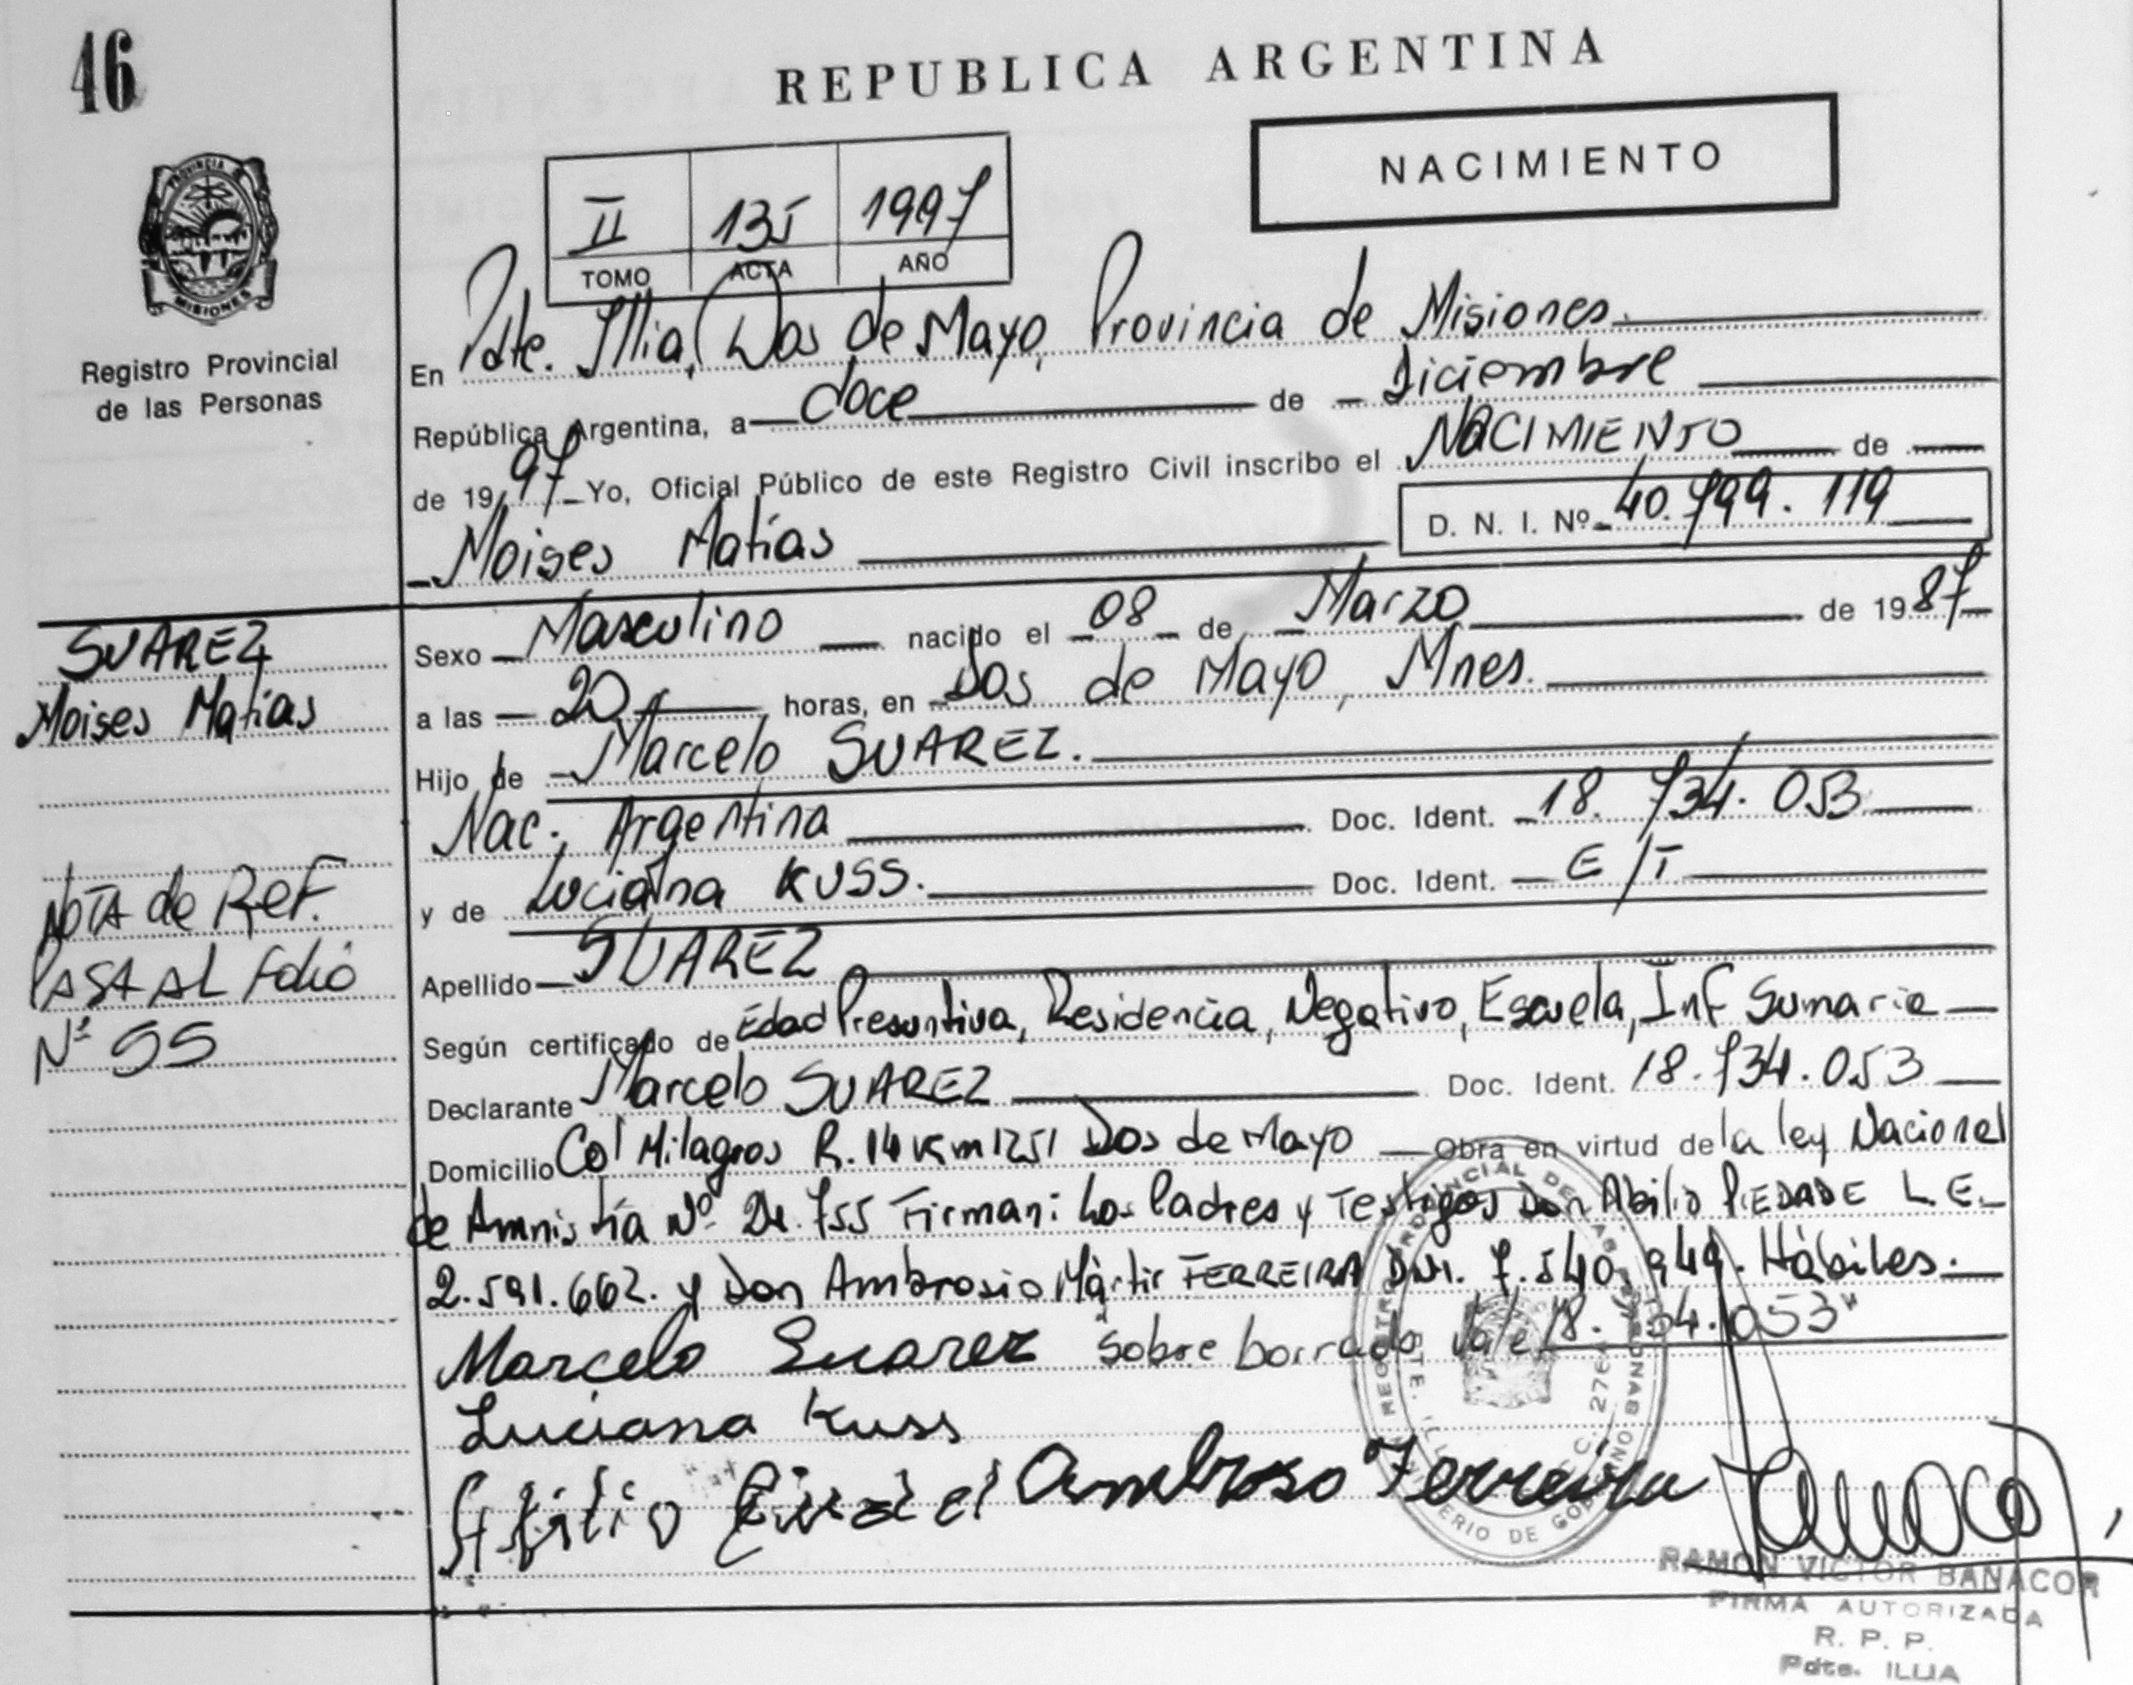 46
REPUBLICA ARGENTINA
NACIMIENTO
II 135 1997
TOMO ACTA AÑO
PROVINCIA DE
MISIONES
Registro Provincial
de las Personas
En Pdte. Illia, Dos de Mayo, Provincia de Misiones.
República Argentina, a doce de Diciembre
de 1997 Yo, Oficial Público de este Registro Civil inscribo el NACIMIENTO de
Moises Matías D. N. I. Nº 40.799.119
SUAREZ
Moises Matías
Sexo Masculino nacido el 08 de Marzo de 1987
a las 20 horas, en Dos de Mayo, Mnes.
Hijo de Marcelo SUAREZ.
Nac. Argentina Doc. Ident. 18.734.053
y de Luciana KUSS. Doc. Ident. E/T
NOTA de Ref.
PASA AL Folio
Nº 55
Apellido SUAREZ
Según certificado de Edad Presuntiva, Residencia, Negativo, Escuela, Inf Sumaria
Declarante Marcelo SUAREZ Doc. Ident. 18.734.053
Domicilio Col Milagros R.14 Km 1251 Dos de Mayo Obra en virtud de la ley Nacional
de Amnistía Nº 24.755 Firman: Los Padres y Testigos Don Abilio PIEDADE L.E.
2.591.662. y Don Ambrosio Mártir FERREIRA DNI. 7.540.949. Hábiles.
Marcelo Suarez "sobre borrado Vale 18.734.053"
Luciana Kuss
Ambroso Ferreira
REGISTRO PROVINCIAL DE LAS PERSONAS
MINISTERIO DE GOBIERNO
RAMON VICTOR BANACOR
FIRMA AUTORIZADA
R. P. P.
Pdte. ILLIA